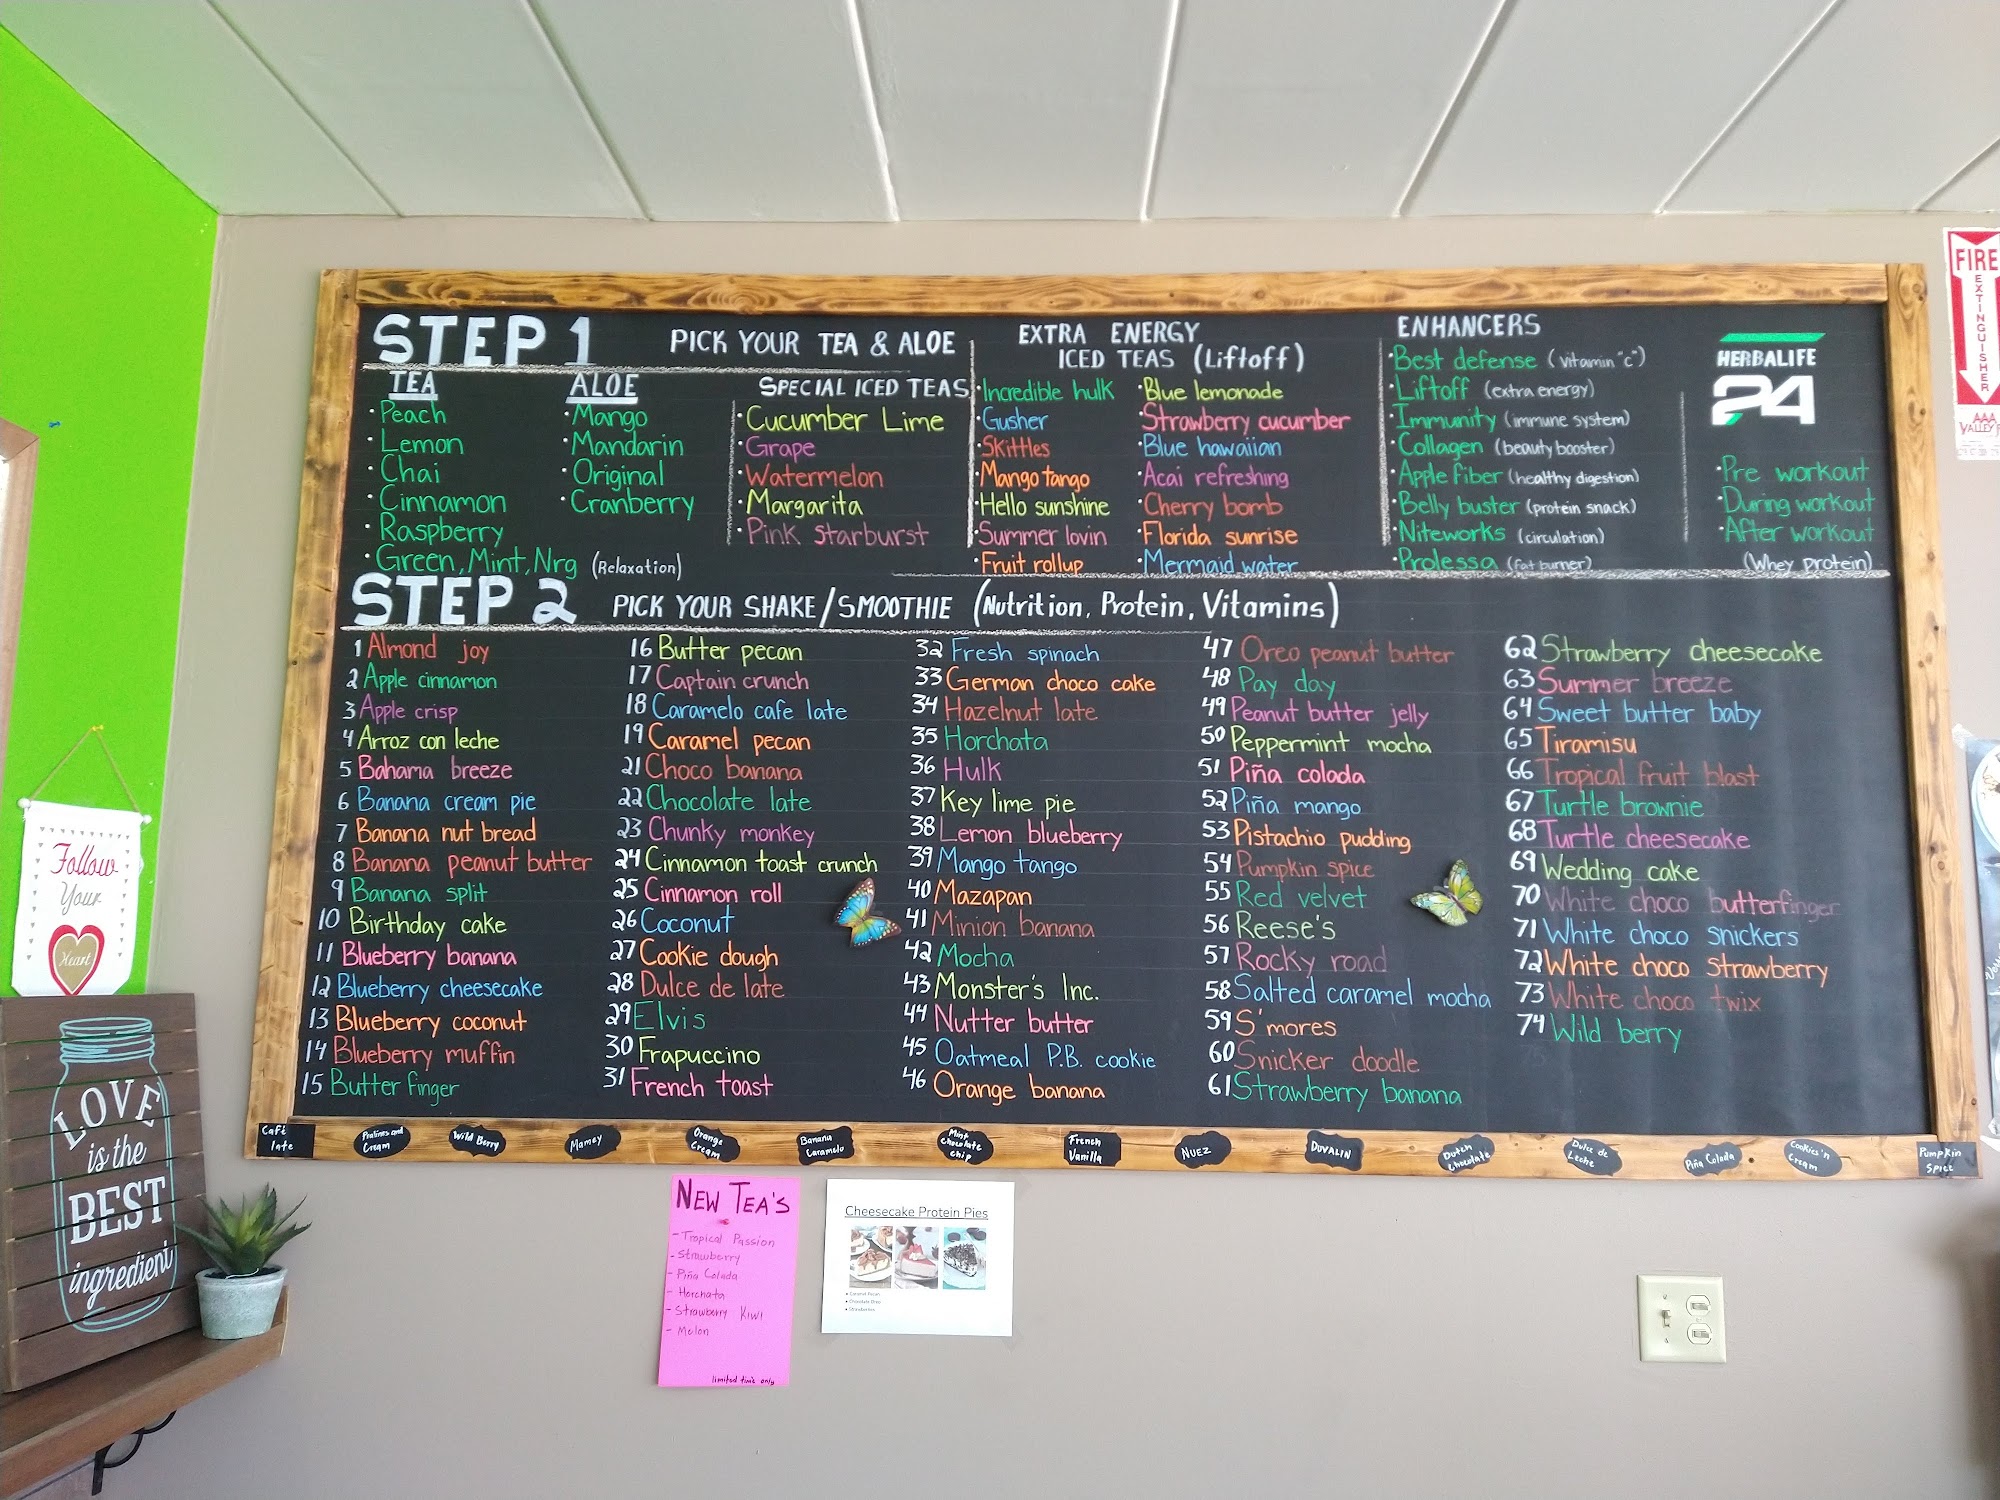 STEP 1 PICK YOUR TEA & ALOE
TEA
Peach
Lemon
Chai
Cinnamon
Raspberry
Green, Mint, Nrg (Relaxation)
ALOE
Mango
Mandarin
Original
Cranberry
SPECIAL ICED TEAS
Cucumber Lime
Grape
Watermelon
Margarita
Pink Starburst
EXTRA ENERGY
ICED TEAS (Liftoff)
Incredible hulk
Gusher
Skittles
Mango tango
Hello sunshine
Summer lovin
Fruit rollup
Blue lemonade
Strawberry cucumber
Blue hawaiian
Acai refreshing
Cherry bomb
Florida sunrise
Mermaid water
ENHANCERS
Best defense (Vitamin "C")
Liftoff (extra energy)
Immunity (immune system)
Collagen (beauty booster)
Apple fiber (healthy digestion)
Belly buster (protein snack)
Niteworks (circulation)
Prolessa (fat burner)
HERBALIFE
24
Pre workout
During workout
After workout
(Whey protein)
STEP 2 PICK YOUR SHAKE/SMOOTHIE (Nutrition, Protein, Vitamins)
1 Almond joy
2 Apple cinnamon
3 Apple crisp
4 Arroz con leche
5 Bahama breeze
6 Banana cream pie
7 Banana nut bread
8 Banana peanut butter
9 Banana split
10 Birthday cake
11 Blueberry banana
12 Blueberry cheesecake
13 Blueberry coconut
14 Blueberry muffin
15 Butter finger
16 Butter pecan
17 Captain crunch
18 Caramelo cafe late
19 Caramel pecan
21 Choco banana
22 Chocolate late
23 Chunky monkey
24 Cinnamon toast crunch
25 Cinnamon roll
26 Coconut
27 Cookie dough
28 Dulce de late
29 Elvis
30 Frapuccino
31 French toast
32 Fresh spinach
33 German choco cake
34 Hazelnut late
35 Horchata
36 Hulk
37 Key lime pie
38 Lemon blueberry
39 Mango tango
40 Mazapan
41 Minion banana
42 Mocha
43 Monster's Inc.
44 Nutter butter
45 Oatmeal P.B. cookie
46 Orange banana
47 Oreo peanut butter
48 Pay day
49 Peanut butter jelly
50 Peppermint mocha
51 Piña colada
52 Piña mango
53 Pistachio pudding
54 Pumpkin spice
55 Red velvet
56 Reese's
57 Rocky road
58 Salted caramel mocha
59 S'mores
60 Snicker doodle
61 Strawberry banana
62 Strawberry cheesecake
63 Summer breeze
64 Sweet butter baby
65 Tiramisu
66 Tropical fruit blast
67 Turtle brownie
68 Turtle cheesecake
69 Wedding cake
70 White choco butterfinger
71 White choco snickers
72 White choco strawberry
73 White choco twix
74 Wild berry
Café
late
Pralines and
Cream
Wild Berry
Mamey
Orange
Cream
Banana
Caramelo
Mint
Chocolate
chip
French
Vanilla
NUEZ
DUVALIN
Dutch
Chocolate
Dulce de
Leche
Piña Colada
Cookies 'n
Cream
Pumpkin
Spice
NEW TEA'S
- Tropical Passion
- Strawberry
- Piña Colada
- Horchata
- Strawberry Kiwi
- Melon
limited time only
Cheesecake Protein Pies
Follow
Your
Heart
LOVE
is the
BEST
ingredient
FIRE
EXTINGUISHER
AAA